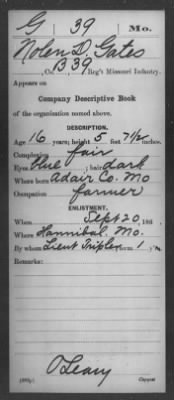 G 39 Mo.
Nolen D. Gates
, Co. B 39, Reg't Missouri Infantry.
Appears on
Company Descriptive Book
of the organization named above.
DESCRIPTION.
Age 16 years; height 5 feet 7 1/2 inches.
Complexion fair
Eyes blue; hair dark
Where born Adair Co. Mo
Occupation farmer
ENLISTMENT.
When Sept 20, 186
Where Hannibal, Mo.
By whom Lieut Triplex; term 1 y'rs.
Remarks:
O'Leary
Copyist